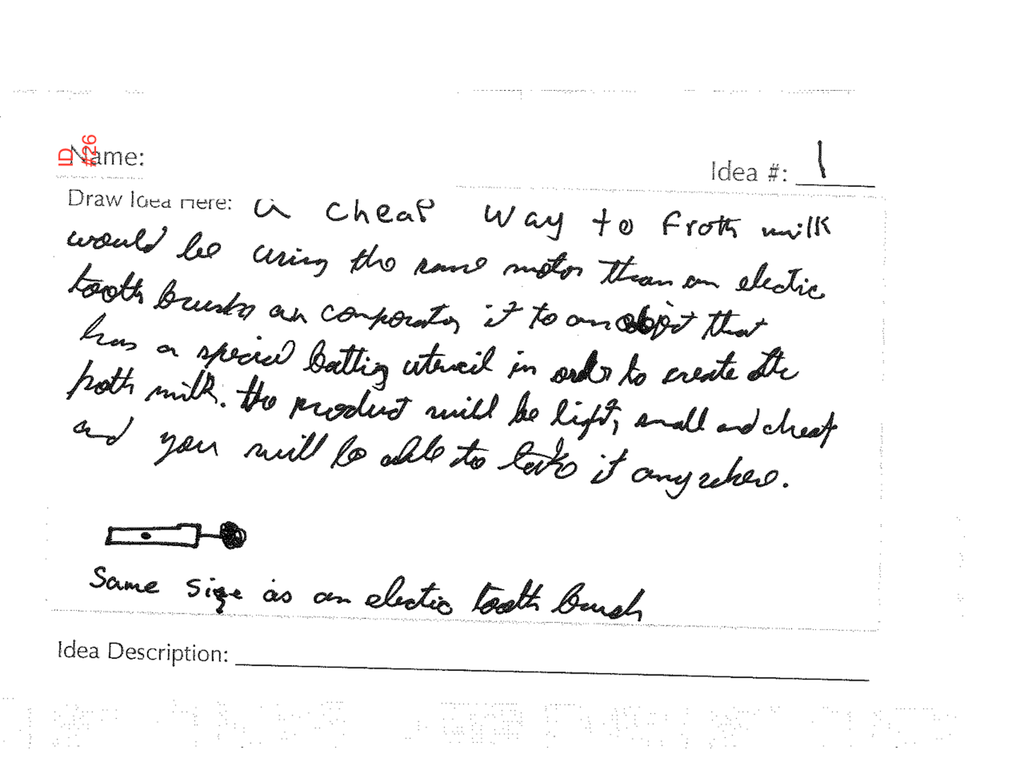 ID #26
Name:
Idea #: 1
Draw Idea Here: a cheap way to froth milk
would be using the same motor than an electic
tooth brush an comporating it to an object that
has a special batting utencil in order to create the
froth milk. the product will be light, small and cheap
and you will be able to take it anywhere.
Same size as an electic tooth brush
Idea Description: